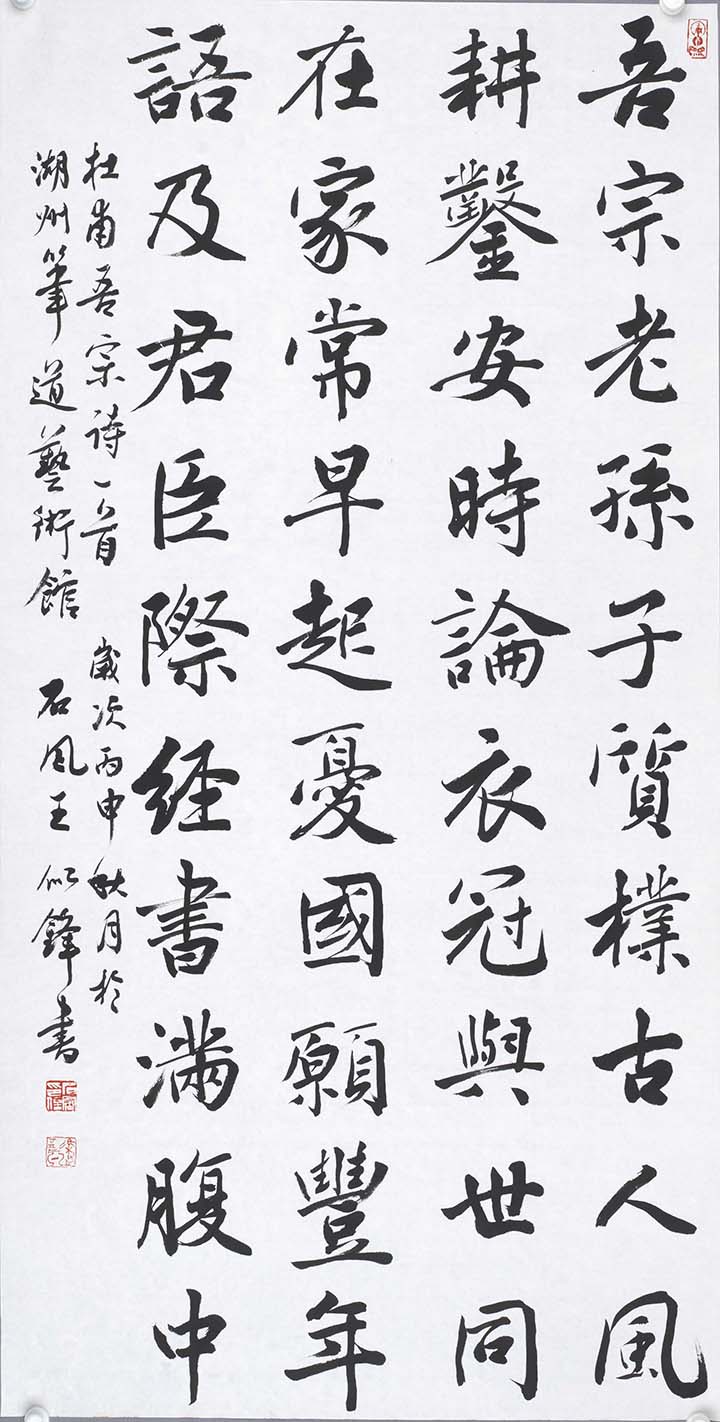 吾宗老孫子質樸古人風
耕鑿安時論衣冠與世同
在家常早起憂國願豐年
語及君臣際経書滿腹中
杜甫吾宗诗一首 歲次丙申秋月於
湖州筆道藝術館 石风王似鋒书